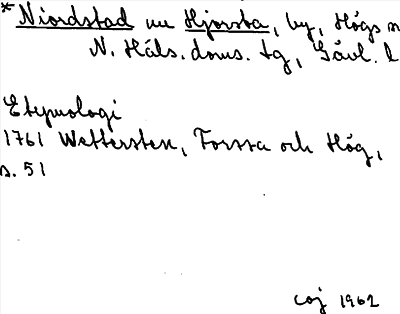 *Niordstad nu Hjorsta, by, Högs n
N. Häls. doms. tg, Gävl. l
Etymologi
1761 Wettersten, Forssa och Hög,
s. 51
coj 1962